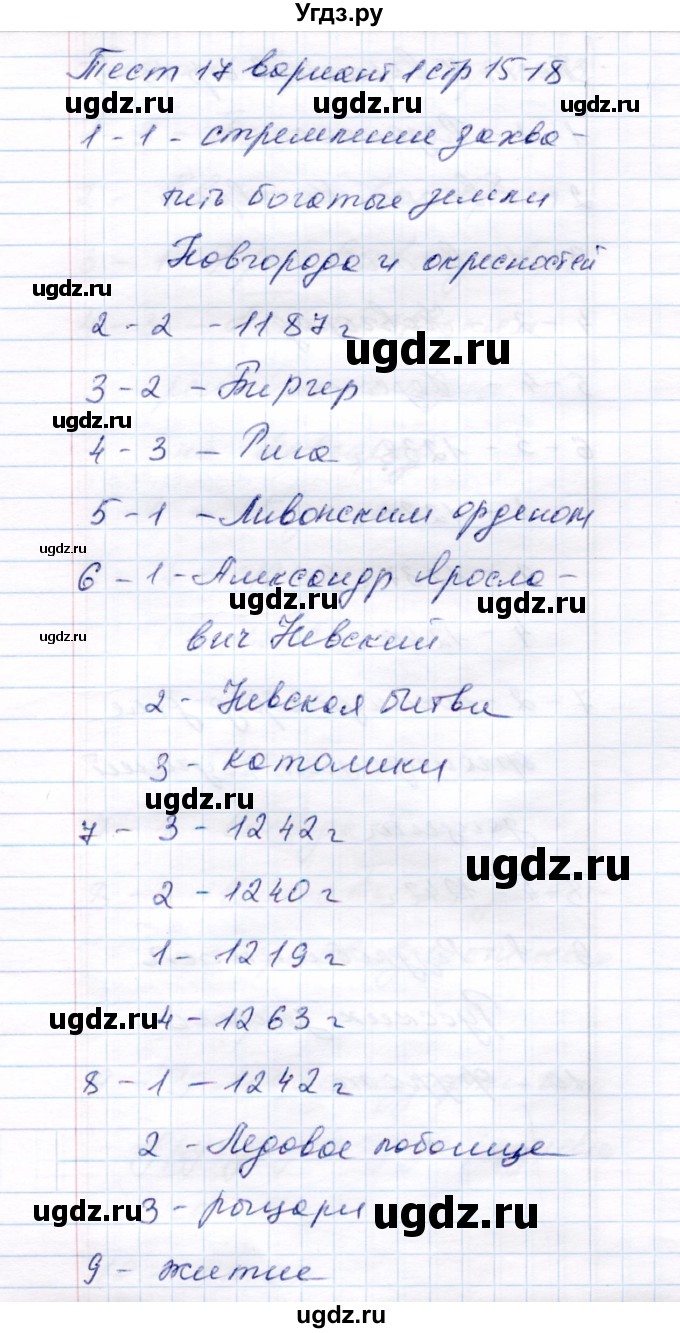 Угдз.ру
Тест 17 вариант 1 стр 15-18
ugdz.ru ugdz.ru ugdz.ru
1 - 1 - стремление захва-
тить богатые земли
Новгорода и окресностей
ugdz.ru
2 - 2 - 1187 г
ugdz.ru
3 - 2 - Биргер
ugdz.ru
4 - 3 - Рига
5 - 1 - Ливонским орденом
ugdz.ru
6 - 1 - Александр Яросла-
ugdz.ru ugdz.ru
ugdz.ru
вич Невский
2 - Невская битва
3 - католики
ugdz.ru
7 - 3 - 1242 г
ugdz.ru
2 - 1240 г
1 - 1219 г
ugdz.ru
4 - 1263 г
8 - 1 - 1242 г
2 - Ледовое побоище
3 - рыцари
ugdz.ru ugdz.ru
9 - житие
ugdz.ru